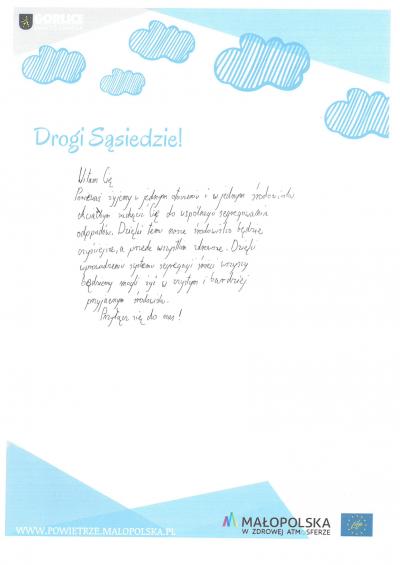 GORLICE
Drogi Sąsiedzie!
Witam Cię
Ponieważ żyjemy w jednym otoczeniu i w jednym środowisku
chciałbym zachęcić Cię do wspólnego segregowania
odpadów. Dzięki temu nasze środowisko będzie
czyściejsze, a przede wszystkim zdrowsze. Dzięki
wprowadzeniu systemu segregacji śmieci wszyscy
będziemy mogli żyć w czystym i bardziej
przyjaznym środowisku.
Przyłącz się do nas!
WWW.POWIETRZE.MALOPOLSKA.PL
MAŁOPOLSKA
W ZDROWEJ ATMOSFERZE